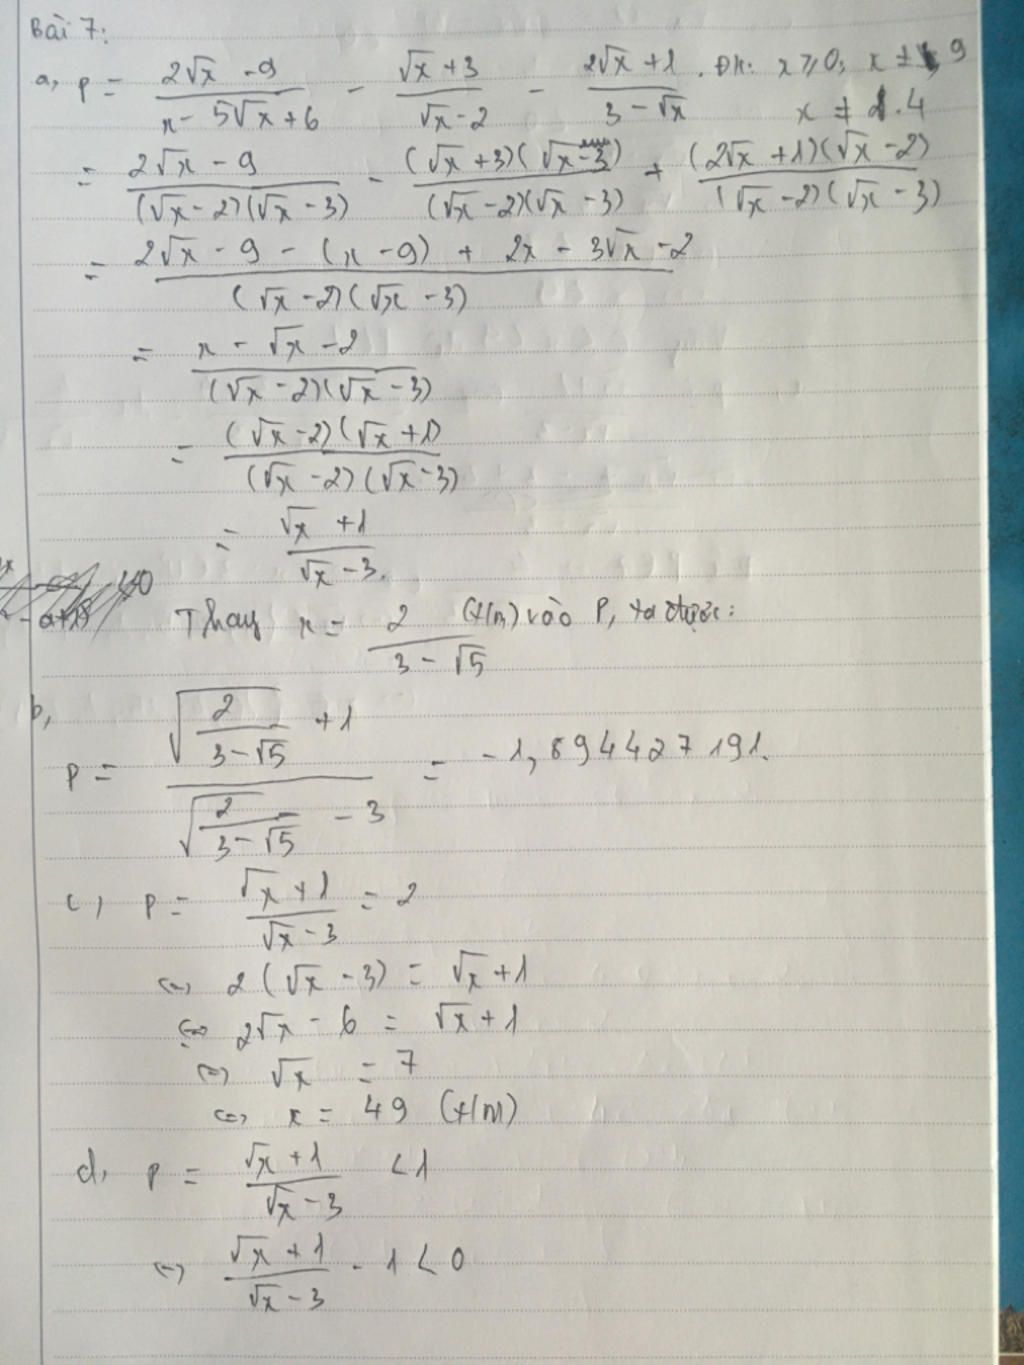 Bài 7:
a, P = (2√x - 9)/(x - 5√x + 6) - (√x + 3)/(√x - 2) - (2√x + 1)/(3 - √x). ĐK: x ≥ 0; x ≠ 9
x ≠ 4
= (2√x - 9)/((√x - 2)(√x - 3)) - ((√x + 3)(√x - 3))/((√x - 2)(√x - 3)) + ((2√x + 1)(√x - 2))/((√x - 2)(√x - 3))
= (2√x - 9 - (x - 9) + 2x - 3√x - 2)/((√x - 2)(√x - 3))
= (x - √x - 2)/((√x - 2)(√x - 3))
= ((√x - 2)(√x + 1))/((√x - 2)(√x - 3))
= (√x + 1)/(√x - 3).
Thay x = 2/(3 - √5) (t/m) vào P, ta được:
b,
P = (√(2/(3 - √5)) + 1)/(√(2/(3 - √5)) - 3) = -1,894427191.
c, P = (√x + 1)/(√x - 3) = 2
(=) 2(√x - 3) = √x + 1
(=) 2√x - 6 = √x + 1
(=) √x = 7
(=) x = 49 (t/m)
d, P = (√x + 1)/(√x - 3) < 1
(=) (√x + 1)/(√x - 3) - 1 < 0